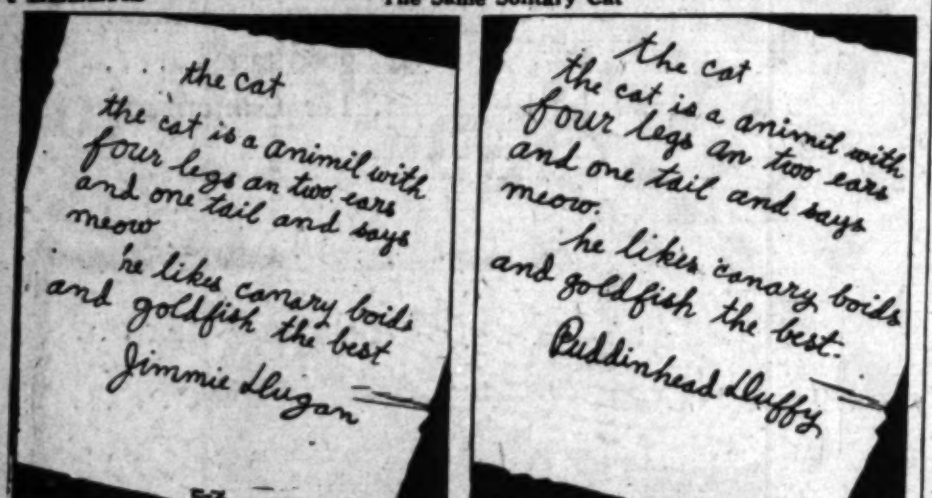 The Same Solitary Cat
the cat
the cat is a animil with
four legs an two ears
and one tail and says
meow
he likes canary boids
and goldfish the best
Jimmie Dugan
5-7
the cat
the cat is a animil with
four legs an two ears
and one tail and says
meow.
he likes canary boids
and goldfish the best.
Puddinhead Duffy